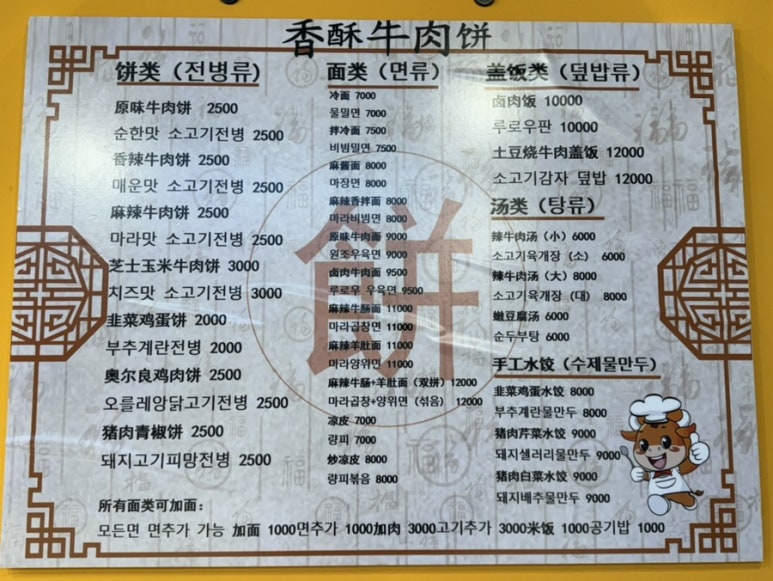 香酥牛肉饼
饼类（전병류）
原味牛肉饼 2500
순한맛 소고기전병 2500
香辣牛肉饼 2500
매운맛 소고기전병 2500
麻辣牛肉饼 2500
마라맛 소고기전병 2500
芝士玉米牛肉饼 3000
치즈맛 소고기전병 3000
韭菜鸡蛋饼 2000
부추계란전병 2000
奥尔良鸡肉饼 2500
오를레앙닭고기전병 2500
猪肉青椒饼 2500
돼지고기피망전병 2500
面类（면류）
冷面 7000
물밀면 7000
拌冷面 7500
비빔밀면 7500
麻酱面 8000
마장면 8000
麻辣香拌面 8000
마라비빔면 8000
原味牛肉面 9000
원조우육면 9000
卤肉牛肉面 9500
루로우 우육면 9500
麻辣牛肠面 11000
마라곱창면 11000
麻辣羊肚面 11000
마라양위면 11000
麻辣牛肠+羊肚面（双拼）12000
마라곱창+양위면（섞음） 12000
凉皮 7000
량피 7000
炒凉皮 8000
량피볶음 8000
盖饭类（덮밥류）
卤肉饭 10000
루로우판 10000
土豆烧牛肉盖饭 12000
소고기감자 덮밥 12000
汤类（탕류）
辣牛肉汤（小）6000
소고기육개장（소） 6000
辣牛肉汤（大）8000
소고기육개장（대） 8000
嫩豆腐汤 6000
순두부탕 6000
手工水饺（수제물만두）
韭菜鸡蛋水饺 8000
부추계란물만두 8000
猪肉芹菜水饺 9000
돼지샐러리물만두 9000
猪肉白菜水饺 9000
돼지배추물만두 9000
餠
所有面类可加面：
모든면 면추가 가능 加面 1000면추가 1000加肉 3000고기추가 3000米饭 1000공기밥 1000